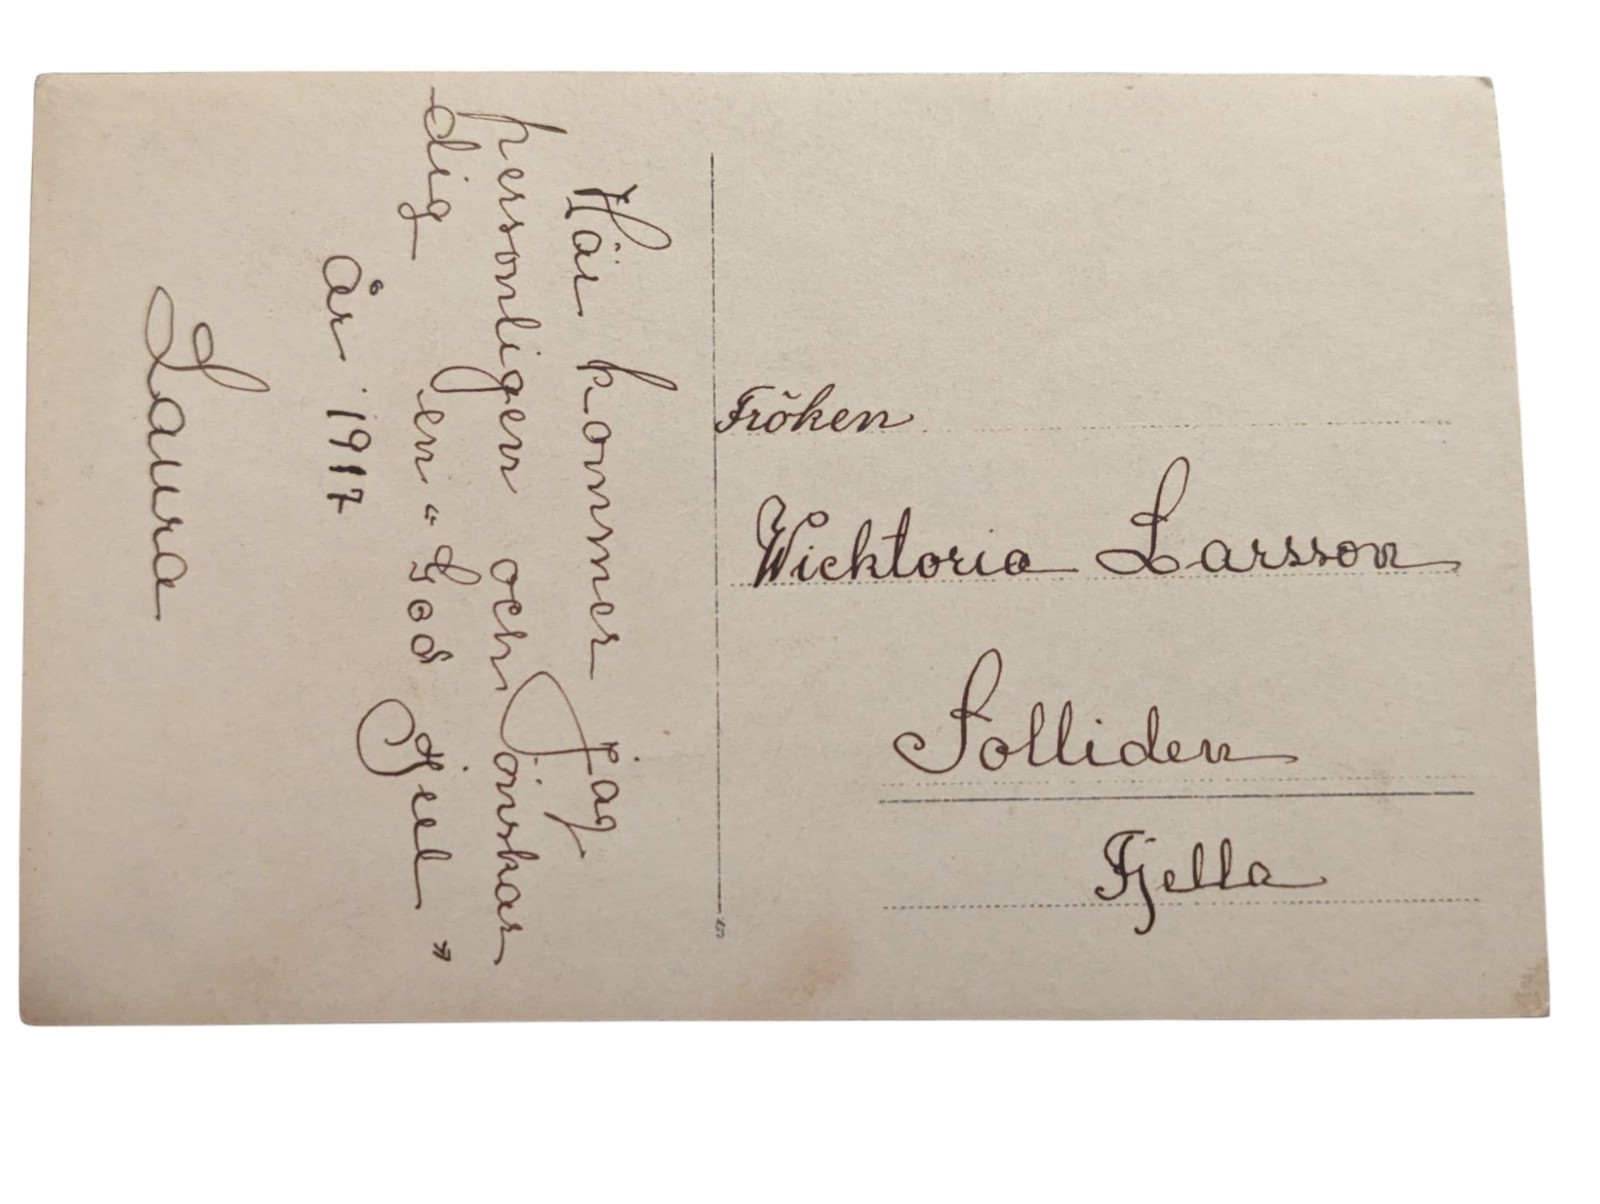 Här kommer jag
personligen och önskar
dig en "God Jul"
år 1917
Laura
Fröken
Wicktoria Larsson
Solliden
Fjella